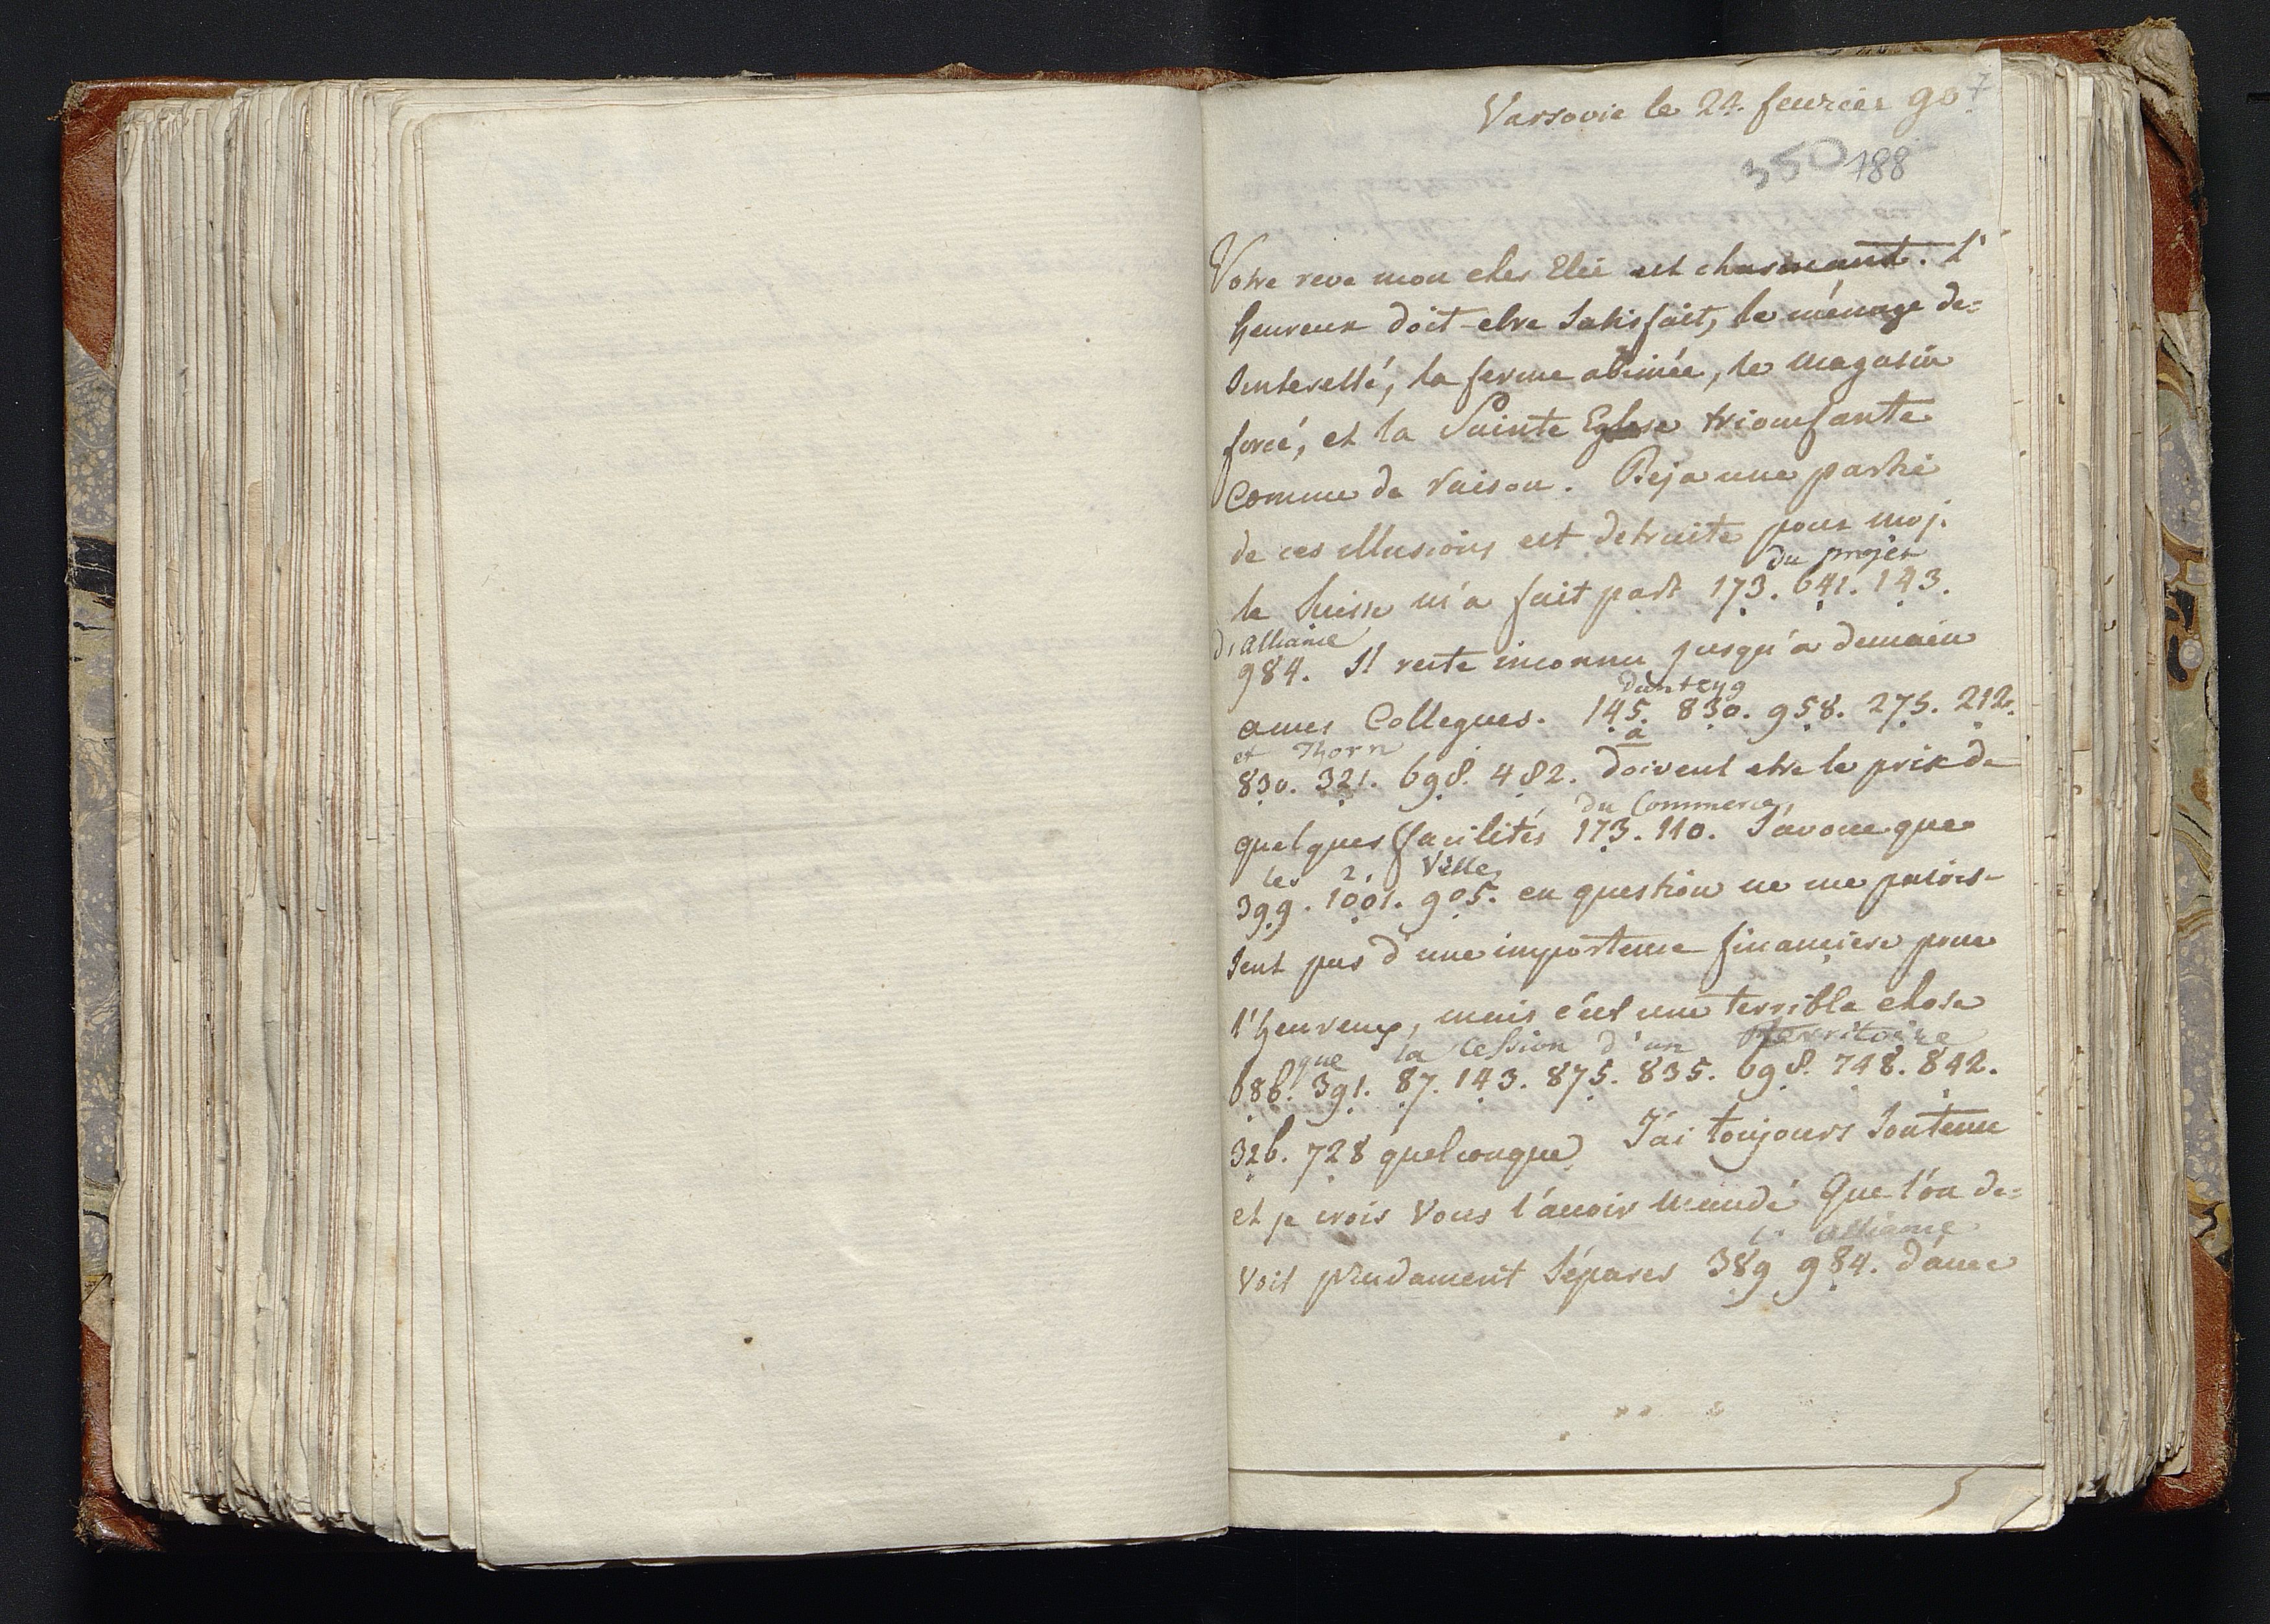 Varsovie le 24. feurier 90. 7
350 188
Votre reve mon cher Elie est charmant. l'
heureux doit etre Satisfait, le menage de=
Sinteressé, la ferme abimée, le magasin
forcé, et la Sainte Eglise triomfante
Comme de raison. Deja une partie
de ces illusions est detruite pour moj.
du projet
le Suisse m'a fait part 173. 641. 143.
d'alliance
984. Il reste inconnu jusqu'a demain
Dantzyg
a mes Collegues. 145. 830. 958. 275. 212.
et Thorn a
830. 321. 698. 482. doivent etre le prix de
du Commerce,
quelques facilités 173. 110. J'avoue que
les 2. Ville,
399. 1001. 905. en question ne me parois-
sent pas d'une importance financiere pour
l'heureux, mais c'est une terrible chose
que la Cession d'un territoire
686. 391. 87. 143. 875. 835. 698. 748. 842.
326. 728 quelconque J'ai toujours Soutenu
et je crois Vous l'avoir mandé Que l'on de=
l' alliance
voit prudament Séparer 389 984. d'avec